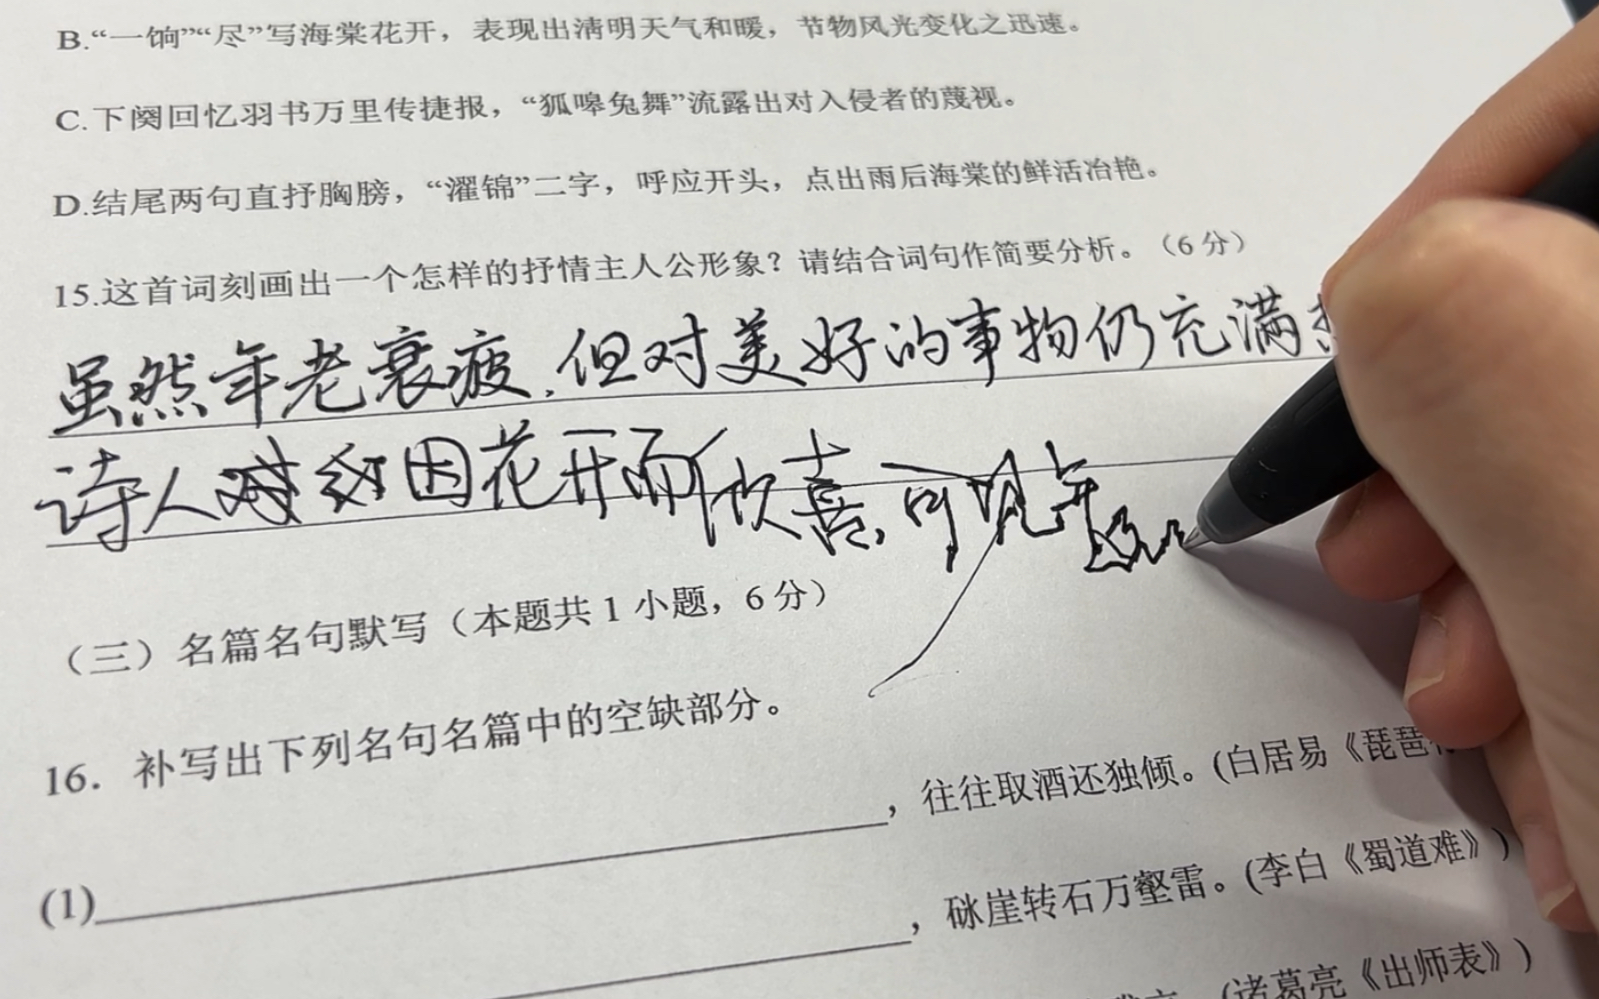 B.“一饷”“尽”写海棠花开，表现出清明天气和暖，节物风光变化之迅速。
C.下阕回忆羽书万里传捷报，“狐嗥兔舞”流露出对入侵者的蔑视。
D.结尾两句直抒胸膀，“濯锦”二字，呼应开头，点出雨后海棠的鲜活冶艳。
15.这首词刻画出一个怎样的抒情主人公形象？请结合词句作简要分析。（6 分）
虽然年老衰疲，但对美好的事物仍充满
诗人因花开而欣喜，可见年
（三）名篇名句默写（本题共 1 小题，6 分）
16．补写出下列名句名篇中的空缺部分。
，往往取酒还独倾。(白居易《琵琶
(1)
，砯崖转石万壑雷。(李白《蜀道难》)
(诸葛亮《出师表》)